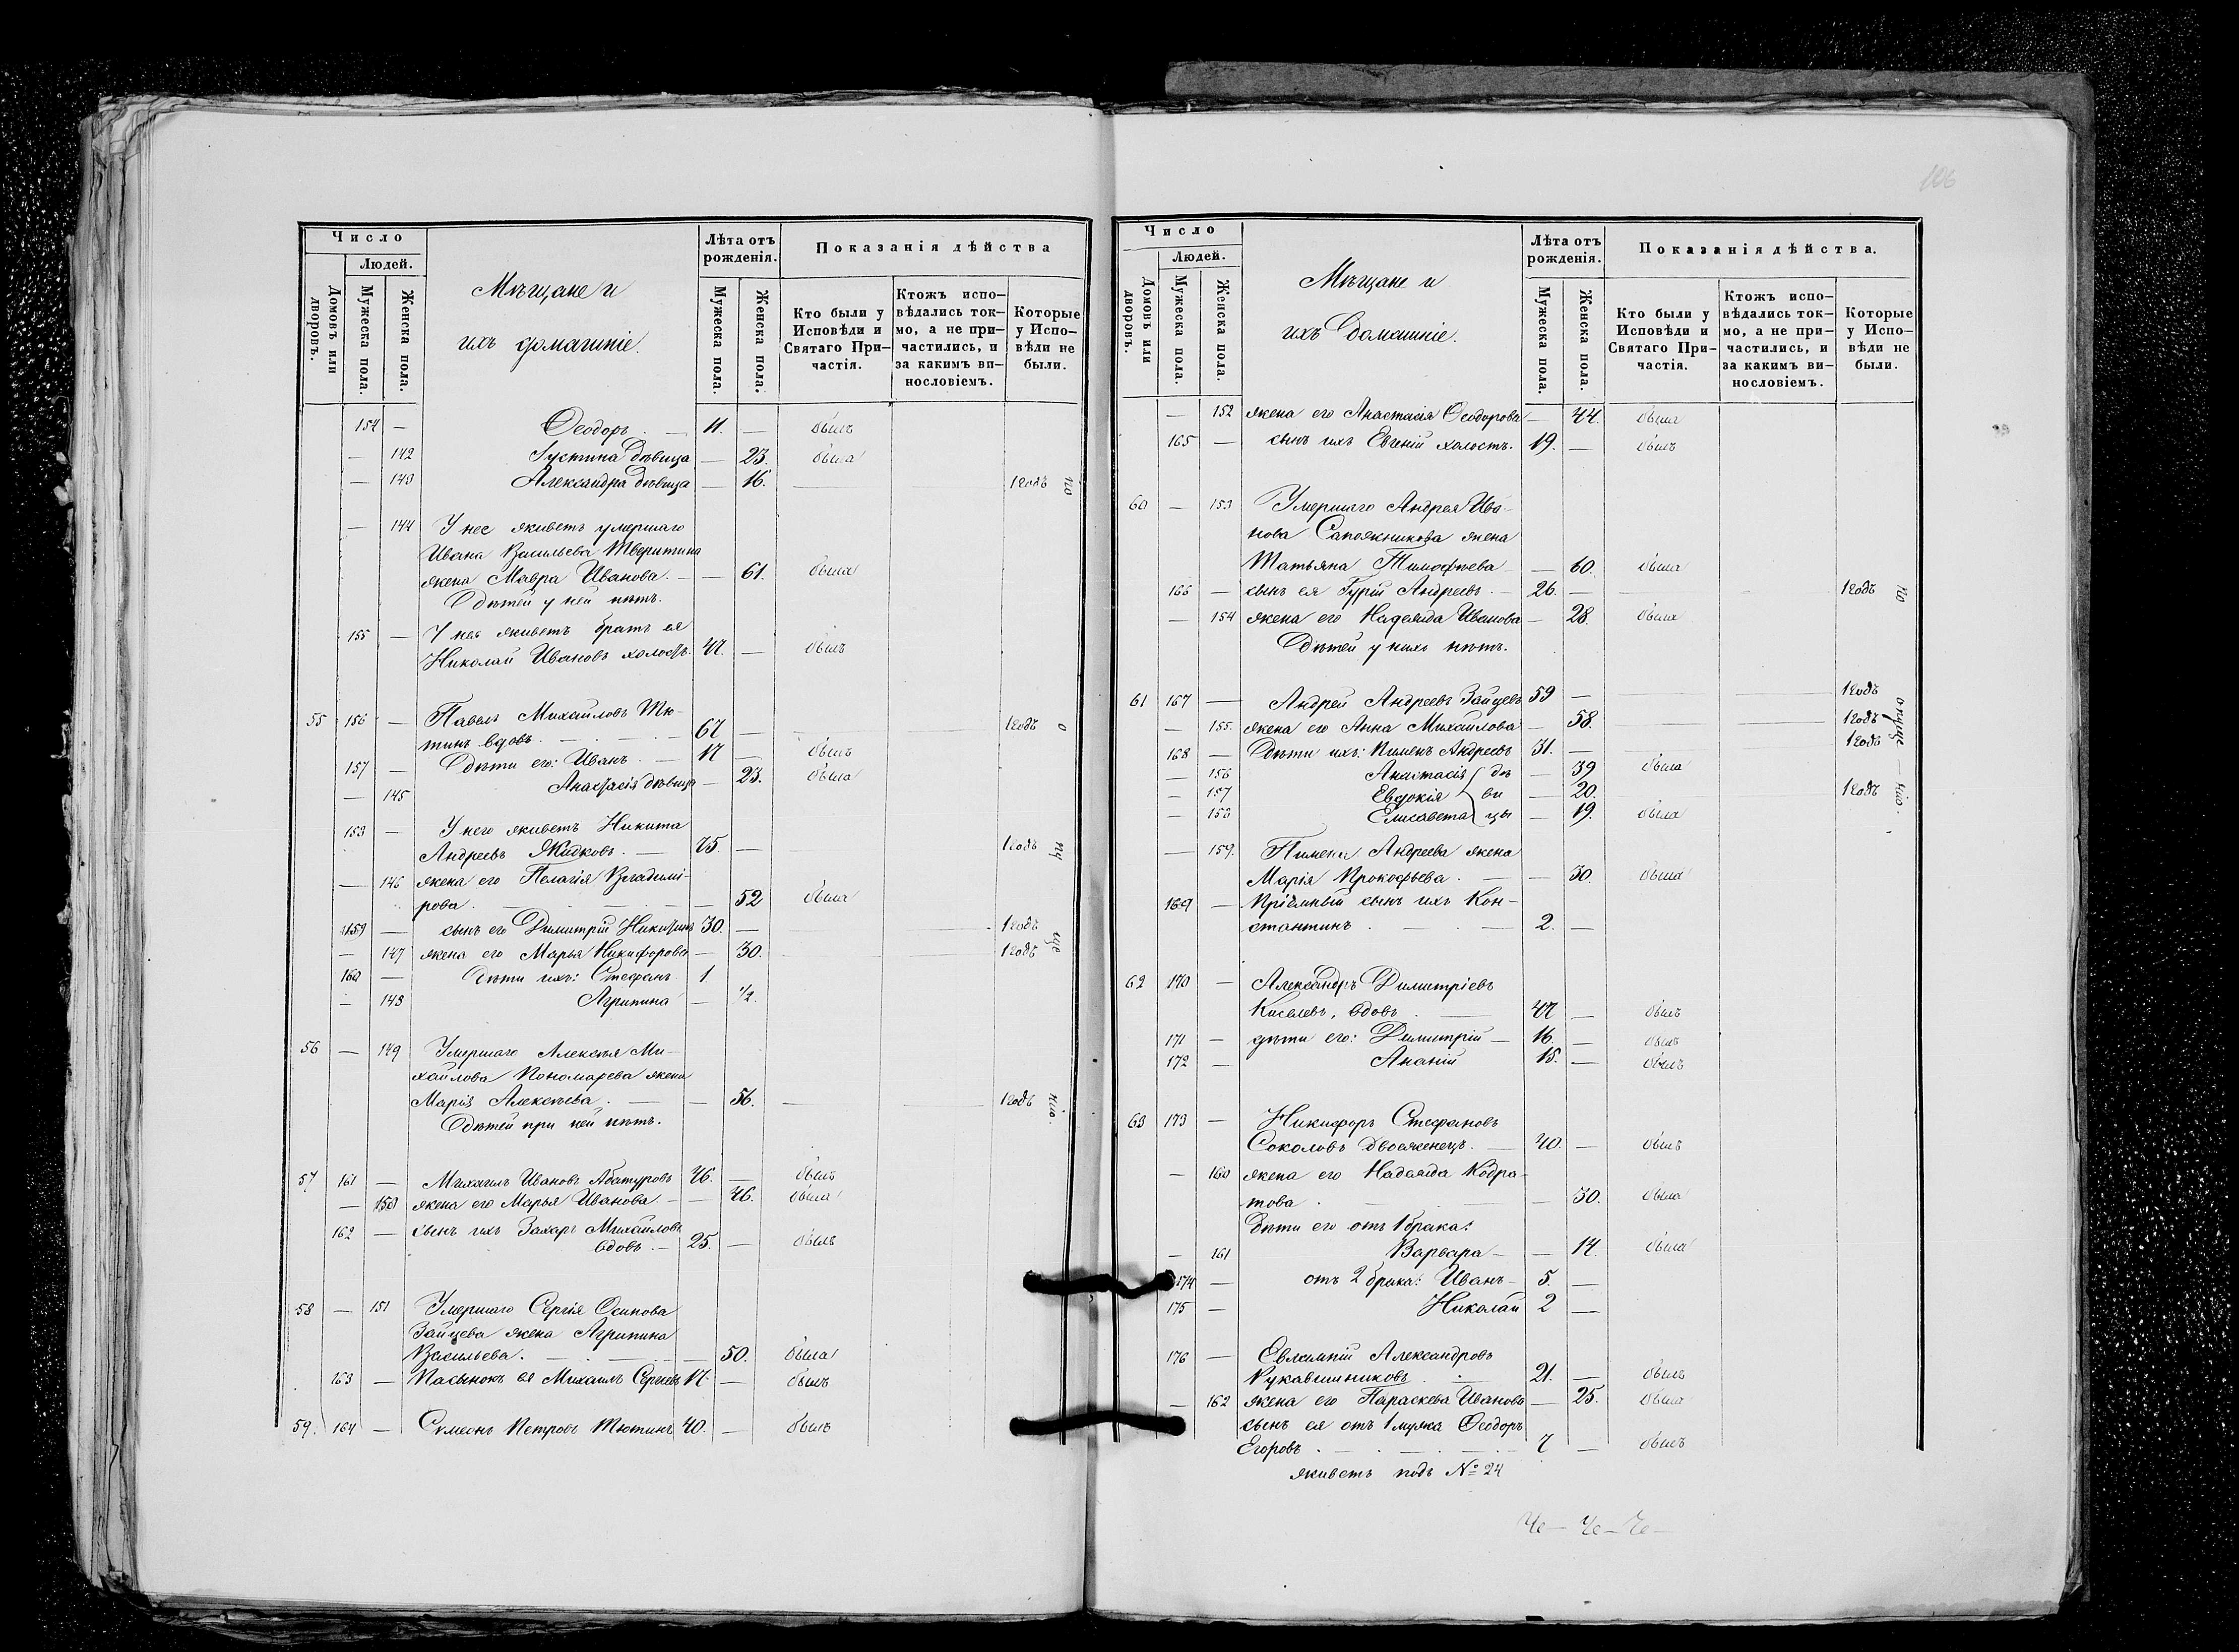 Число
Людей.
Домовъ или дворовъ.
Мужеска пола.
Женска пола.
Мѣщане и
ихъ домашніе.
Лѣта отъ рожденія.
Мужеска пола.
Женска пола.
Показанія дѣйства
Кто были у Исповѣди и Святаго При-частія.
Ктожъ испо-вѣдались ток-мо, а не при-частились, и за какимъ ви-нословіемъ.
Которые у Испо-вѣди не были.
154 — Ѳеодоръ. — 11. — былъ
— 142 Іустина дѣвица — 23. была
— 143 Александра дѣвица — 16. 1 годъ по
— 144 У нее живетъ умершаго
Ивана Васильева Тверитина
жена Мавра Иванова. — — 61. была
Дѣтей у ней нѣтъ.
155 — У нея живетъ братъ ея
Николай Ивановъ холостъ. 47. — былъ
55 156 — Павелъ Михайловъ Тю-
тинъ вдовъ. — 67 — 1 годъ о
157 — Дѣти его: Иванъ. — 17 — былъ
— 145 Анастасія дѣвица — 23. была
158 — У него живетъ Никита
Андреевъ Жидковъ. — 75. — 1 годъ пу
— 146 жена его Пелагія Владимі-
рова. — 52 была
159 — сынъ его Димитрій Никитинъ 30. — 1 годъ ще
— 147 жена его Марья Никифорова — 30. 1 годъ
160 — Дѣти ихъ: Стефанъ 1
— 148 Агрипина — 1/2.
56 — 149 Умершаго Алексѣя Ми-
хайлова Пономарева жена
Марія Алексѣева. — — 56. 1 годъ нію.
Дѣтей при ней нѣтъ.
57 161 — Михаилъ Ивановъ Абатуровъ 46. — былъ
— 150 жена его Марья Иванова. — — 46. была
162 — сынъ ихъ Захаръ Михайловъ
вдовъ. — 25. — былъ
58 — 151 Умершаго Сергія Осипова
Зайцева жена Агрипина
Васильева. — 50. была
163 — Пасынокъ ея Михаилъ Сергѣевъ 17. — былъ
59. 164 — Симеонъ Петровъ Тютинъ 40. — былъ
106
Число
Людей.
Домовъ или дворовъ.
Мужеска пола.
Женска пола.
Мѣщане и
ихъ домашніе.
Лѣта отъ рожденія.
Мужеска пола.
Женска пола.
Показанія дѣйства.
Кто были у Исповѣди и Святаго При-частія.
Ктожъ испо-вѣдались ток-мо, а не при-частились, и за какимъ ви-нословіемъ.
Которые у Испо-вѣди не были.
— 152 жена его Анастасія Ѳеодорова — 44. была
165 — сынъ ихъ Евгеній холостъ. 19. — былъ
60 — 153 Умершаго Андрея Ива-
нова Сапожникова жена
Татьяна Тимофѣева — 60. была
166 — сынъ ея Гурій Андреевъ. — 26. — 1 годъ по
— 154 жена его Надежда Иванова — 28. была
Дѣтей у нихъ нѣтъ.
61 167 — Андрей Андреевъ Зайцевъ 59 — 1 годъ
— 155. жена его Анна Михайлова — 58. 1 годъ опуще—нію.
168 — Дѣти ихъ: Пименъ Андреевъ 31. — 1 годъ
— 156 Анастасія дѣ — 39 была
— 157 Евдокія ви — 20. 1 годъ
— 158 Елисавета цы — 19. была
— 159. Пимена Андреева жена
Марія Прокофьева. — — 30. была
169 — Пріёмный сынъ ихъ Кон-
стантинъ. — 2. —
62 170 — Александръ Димитріевъ
Киселевъ, вдовъ. 47 — былъ
171 — дѣти его: Димитрій — 16. — былъ
172 — Ананій 15. — былъ
63 173 — Никифоръ Стефановъ
Соколовъ двоеженецъ. — 40. — былъ
— 160 жена его Надежда Кодра-
това. — 30. была
Дѣти его отъ 1 брака:
— 161 Варвара — — 14. была
174 — отъ 2 брака: Иванъ — 5. —
175 — Николай 2 —
176 — Евѳимій Александровъ
Рукавишниковъ. 21. — былъ
— 162 жена его Параскева Иванова — 25. была
сынъ ея отъ 1 мужа Ѳеодоръ
Егоровъ. — 7 — былъ
живетъ подъ № 24